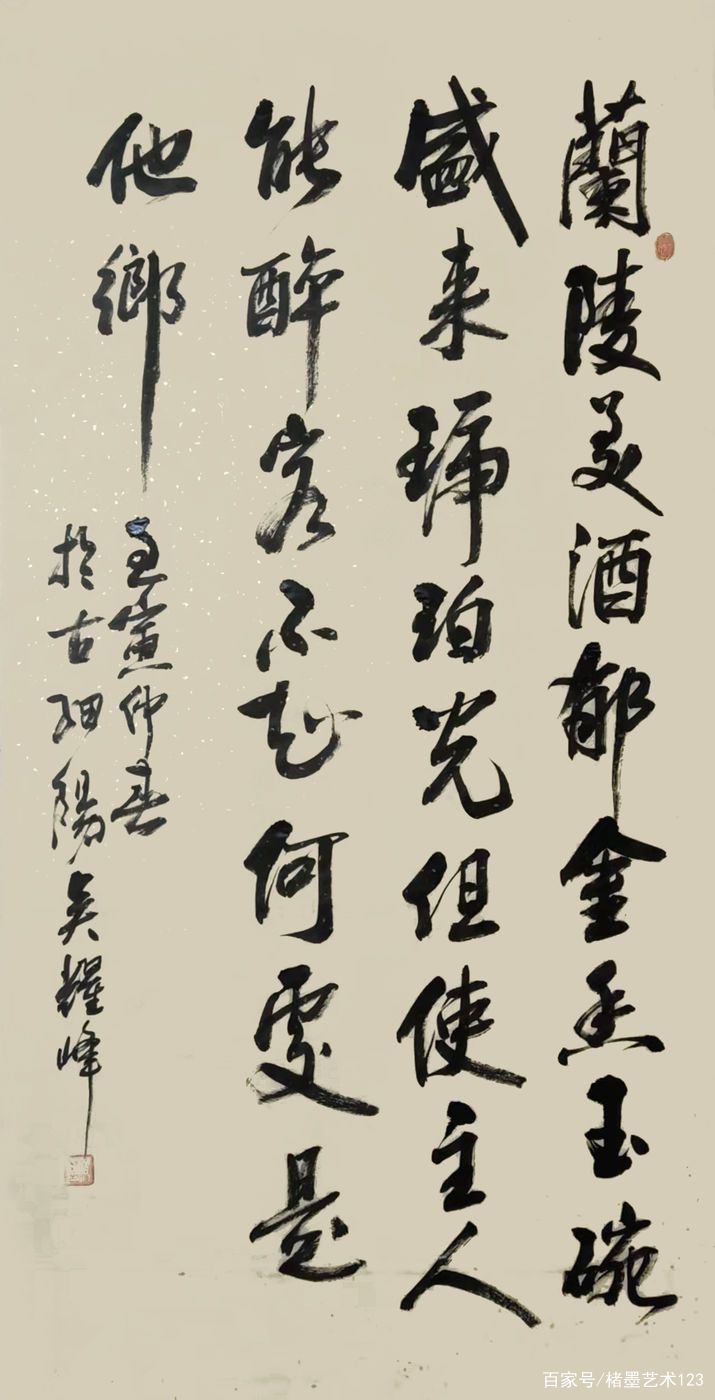 蘭陵美酒郁金香玉碗
盛来琥珀光但使主人
能醉客不知何處是
他鄉
壬寅仲春
於古細陽吴耀峰
百家号/楮墨艺术123